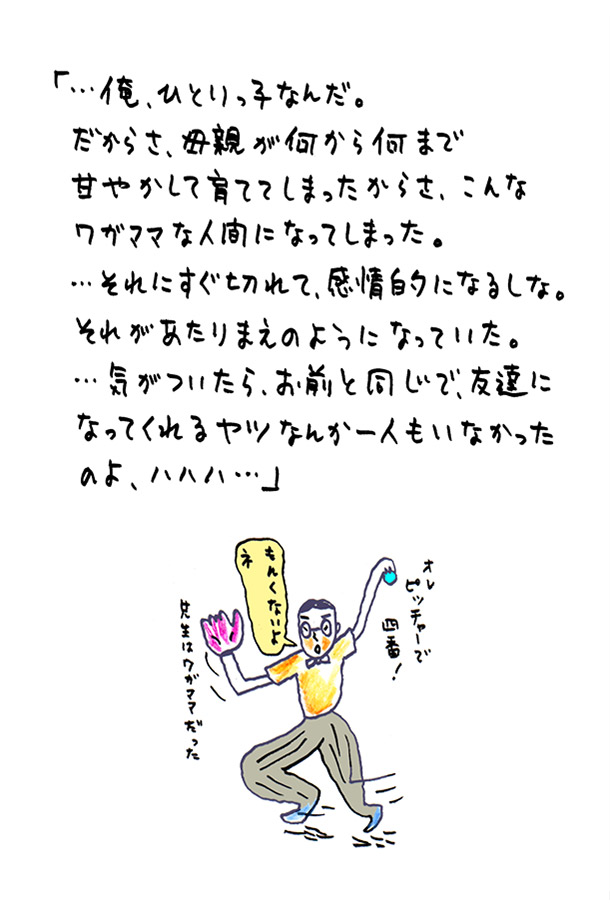 「…俺、ひとりっ子なんだ。
だからさ、母親が何から何まで
甘やかして育ててしまったからさ、こんな
ワガママな人間になってしまった。
…それにすぐ切れて、感情的になるしな。
それがあたりまえのようになっていた。
…気がついたら、お前と同じで、友達に
なってくれるヤツなんか一人もいなかった
のよ、ハハハ…」
オレ
ピッチャーで
四番!
もんくないよ
ネ
先生はワガママだった